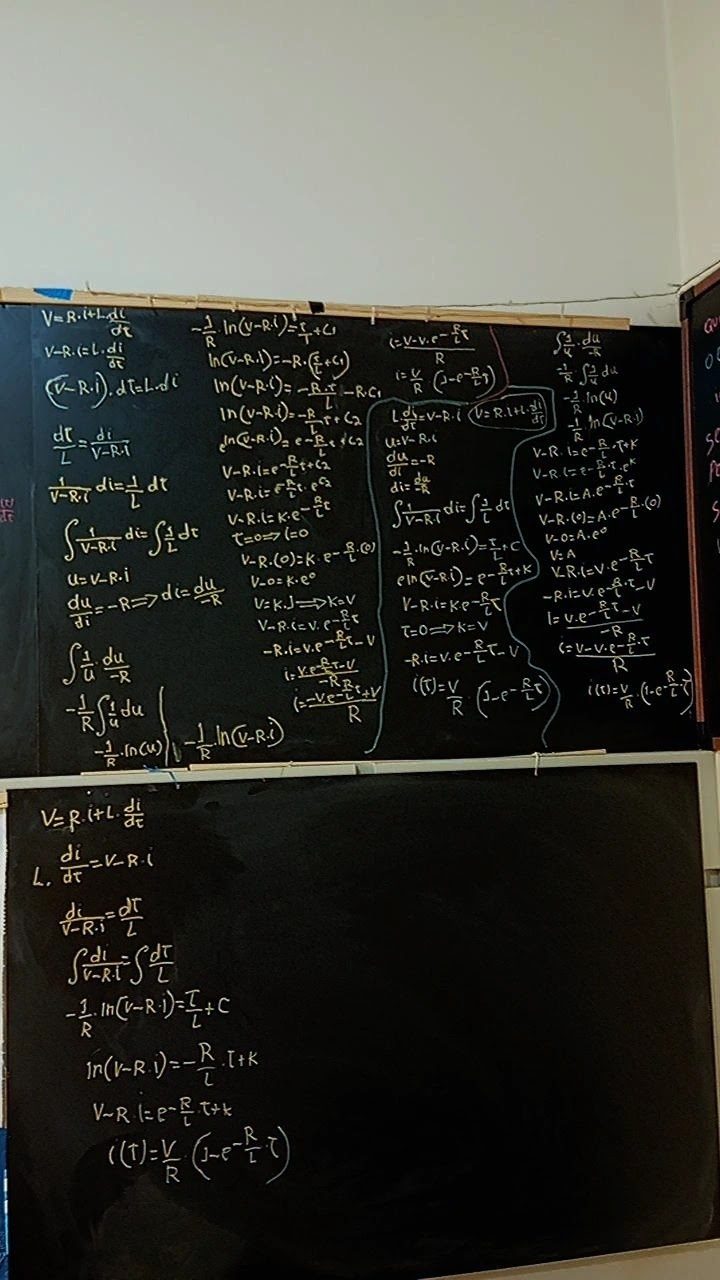 V=R.i+L.di/dτ
V-R.i=L.di/dτ
(V-R.i).dτ=L.di
dτ/L=di/V-R.i
1/V-R.i di=1/L dτ
∫1/V-R.i di=∫1/L dτ
u=V-R.i
du/di=-R⟹di=du/-R
∫1/u.du/-R
-1/R∫1/u du
-1/R.ln(u)
-1/R ln(V-R.i)
ln(V-R.i)=-R.(τ/L+C1)
ln(V-R.i)=-R.τ/L-R.C1
ln(V-R.i)=-R/L τ+C2
eln(V-R.i)=e-R/L τ+C2
V-R.i=e-R/L τ+C2
V-R.i=e-R/L τ.eC2
V-R.i=K.e-R/L τ
τ=0⟹i=0
V-R.(0)=K.e-R/L.(0)
V-0=K.e⁰
V=K.1⟹K=V
V-R.i=V.e-R/L τ
-R.i=V.e-R/L τ-V
i=V.e-R/L τ-V/-R
i=-V.e-R/L τ+V/R
i=V-V.e-R/L τ/R
i=V/R (1-e-R/L τ)
L.di/dτ=V-R.i
V=R.i+L.di/dτ
u=V-R.i
du/di=-R
di=du/-R
∫1/V-R.i di=∫1/L dτ
-1/R.ln(V-R.i)=τ/L+C
eln(V-R.i)=e-R/L τ+K
V-R.i=K.e-R/L τ
τ=0⟹K=V
-R.i=V.e-R/L τ-V
i(τ)=V/R.(1-e-R/L τ)
∫1/u.du/-R
-1/R∫1/u du
-1/R ln(u)
-1/R ln(V-R.i)
V-R.i=e-R/L.τ+K
V-R.i=e-R/L.τ.eᴷ
V-R.i=A.e-R/L.τ
V-R.(0)=A.e-R/L.(0)
V-0=A.e⁰
V=A
V-R.i=V.e-R/L τ
-R.i=V.e-R/L.τ-V
i=V.e-R/L τ-V/-R
i=V-V.e-R/L.τ/R
i(τ)=V/R.(1-e-R/L.τ)
V=R.i+L.di/dτ
L.di/dτ=V-R.i
di/V-R.i=dτ/L
∫di/V-R.i=∫dτ/L
-1/R.ln(V-R.i)=τ/L+C
ln(V-R.i)=-R/L.τ+K
V-R.i=e-R/L.τ+K
i(τ)=V/R.(1-e-R/L.τ)